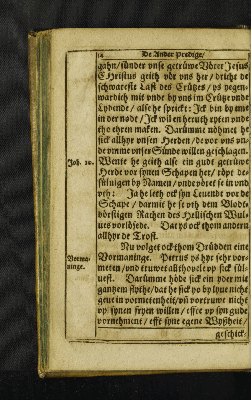 14 De Ander Predige/
gahn/ sünder vnse getrüwe Vörer Jesus
CHristus geith vör vns her/ dricht de
schwareste Last des Crützes/ ys yegen-
wardich mit vnde by vns im Crütze vnde
Lydende/ alse he sprickt: Ick bin by eme
in der nodt/ Ick wil en heruth ryten vnde
the ehren maken. Darümme nömet he
sick allhyr vnsen Herden/ de vor vns vn-
de vmme vnser Sünde willen geschlagen.
Joh. 10. Wente he geith alse ein gudt getrüwe
Herde vor synen Schapen her/ röpt de-
sülvigen by Namen/ vnde vöret se in vnd
vth: Ja he leth ock syn Leuendt vor de
Schape/ darmit he se vth dem Blodt-
dörstigen Rachen des Hellischen Wul-
ues vorlösede. Dat ys ock thom andern
allhyr de Trost.
Nu volget ock thom Drüdden eine
Vorma-
ninge.
Vormaninge. Petrus ys hyr sehr vor-
meten/ vnd truwet allthovele vp sick sül-
uest. Darümme höde sick ein yder mit
gantzem flythe/ dat he sick yo by lyue nicht
geue in vormetenheit/ vñ vortruwe nicht
vp synen fryen willen/ effte vp syn gude
vornehment/ effte syne egene Wyßheit/
geschick-